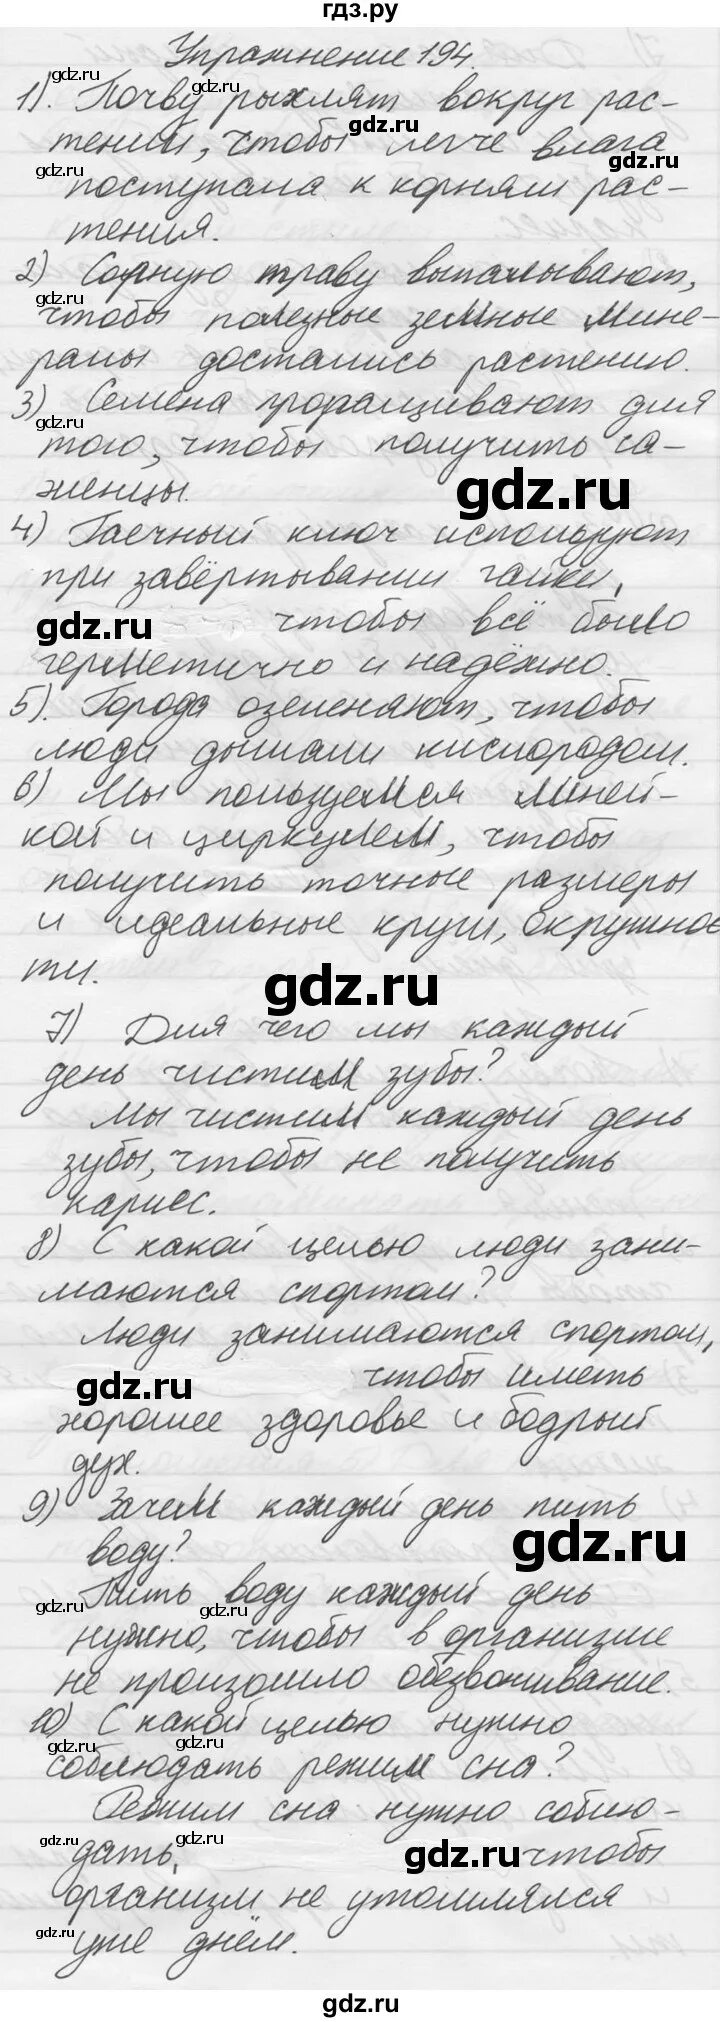 гдз.ру
Упражнение 194.
gdz.ru
1). Почву рыхлят вокруг рас-
gdz.ru
gdz.ru
тений, чтобы легче влага
gdz.ru
gdz.ru
поступала к корням рас-
тения.
2) Сорную траву выпалывают,
gdz.ru
чтобы полезные земные мине-
ралы достались растению.
3) Семена проращивают для
gdz.ru
того, чтобы получить са-
женцы.
gdz.ru
4) Гаечный ключ используют
при завёртывании гайки,
gdz.ru
чтобы всё было
герметично и надёжно.
5). Города озеленяют, чтобы
люди дышали кислородом.
6) Мы пользуемся линей-
кой и циркулем, чтобы
получить точные размеры
и идеальные круги, окружнос
ти.
gdz.ru
7) Для чего мы каждый
день чистим зубы?
Мы чистим каждый день
зубы, чтобы не получить
кариес.
8) С какой целью люди зани-
маются спортом?
Люди занимаются спортом,
gdz.ru
чтобы иметь
хорошее здоровье и бодрый
дух.
9) Зачем каждый день пить
gdz.ru
воду?
Пить воду каждый день
gdz.ru
gdz.ru
нужно, чтобы в организме
не произошло обезвоживание.
10) С какой целью нужно
gdz.ru
gdz.ru
соблюдать режим сна?
Режим сна нужно соблю-
gdz.ru
gdz.ru
дать,
gdz.ru
чтобы
организм не утомлялся
gdz.ru
уже днём.
gdz.ru